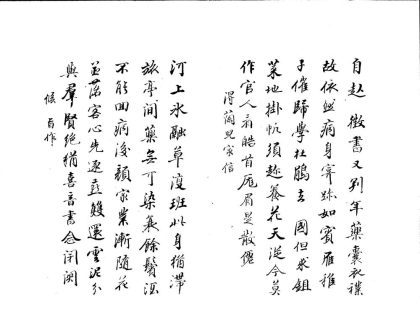 自赴徵書又別年藥囊衣襆
故依然病身穿跡如賓雁稚
子催歸學杜鵑去國但求鉏
菜地掛帆須趁養花天從今莫
作官人看皓首厖眉是散僊
得 兒家信
河上冰融草 班此身猶滯
旅亭間藥無可染衰餘鬢酒
不能回病後顏家業漸隨花
並落客心先逐燕雙還雲泥分
與羣賢絕猶喜音書念閑關
候旨作